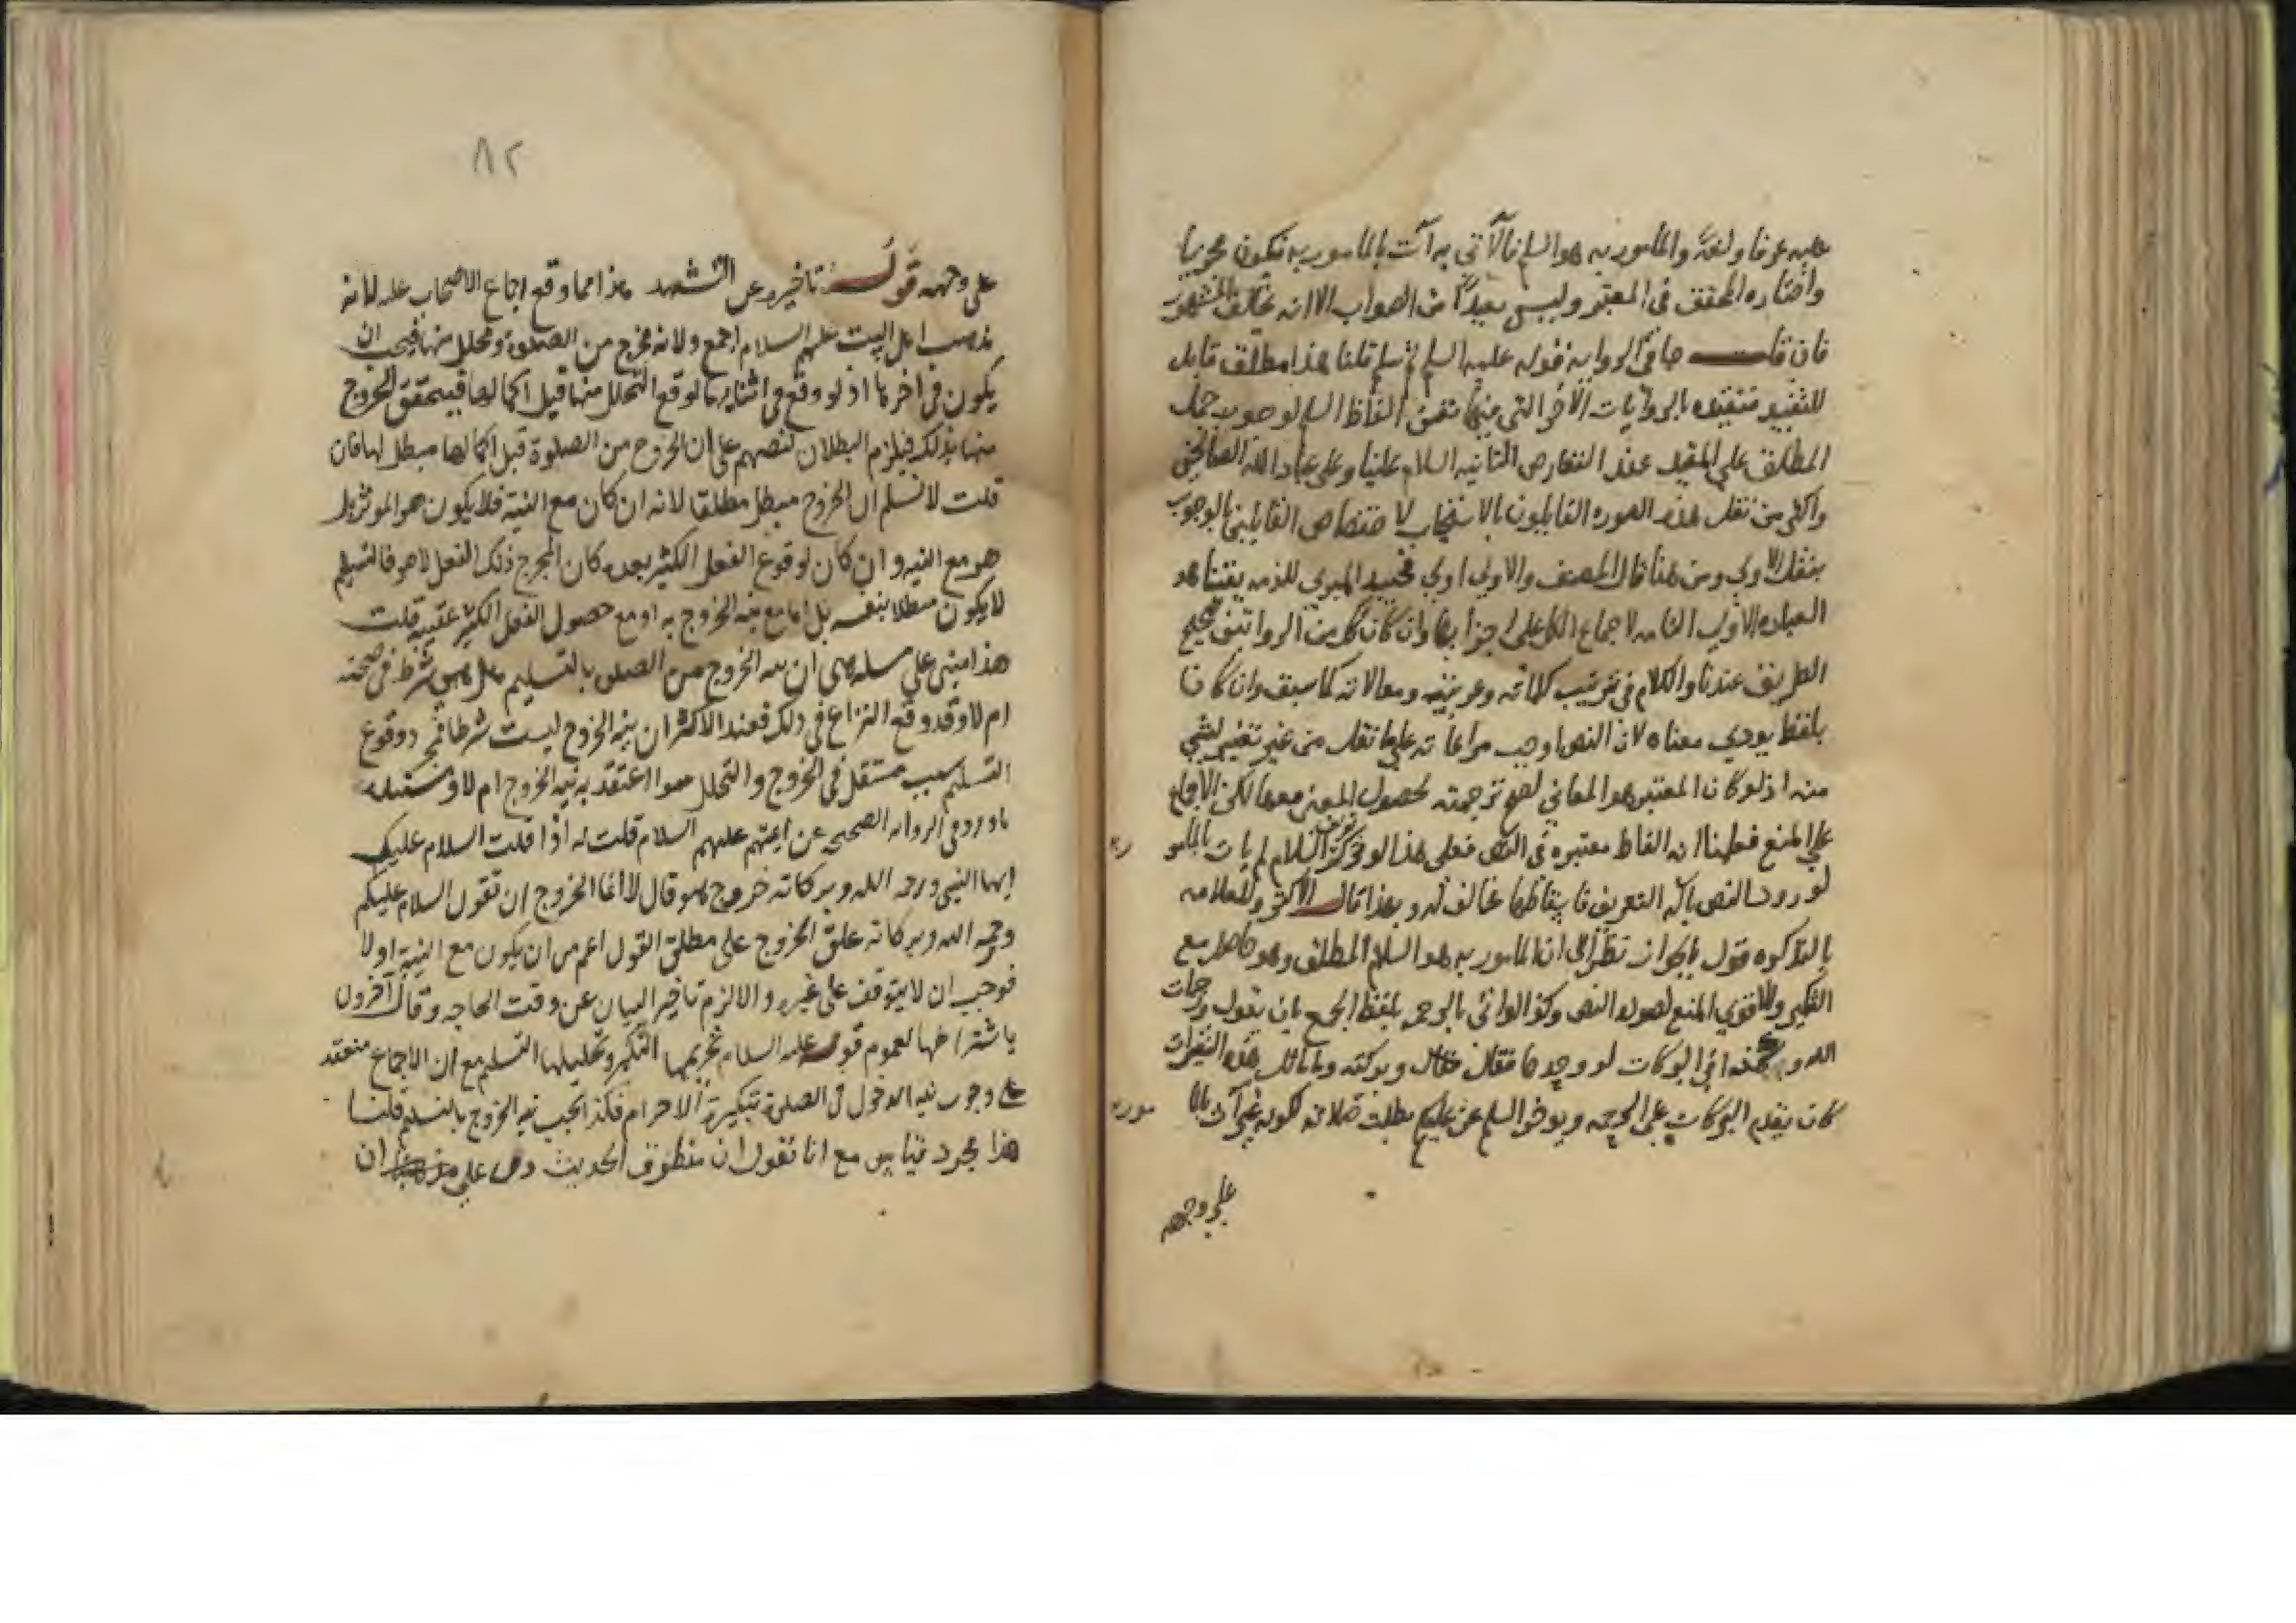 عليه عرفا ولغة والمامور به هو السلم فالآتي به آت بالمامور به فيكون مجزيا
واختاره المحقق في المعتبر وليس بعيدا من الصواب الا انه مخالف للمشهور
فان قلت جا في الرواية قوله عليه السلم ثم سلم قلنا هذا مطلق قابل
للتقييد فتقيده بالروايات الاخر التي فيها تعين الفاظ السلم لوجوب حمل
المطلق على المقيد عند التعارض الثانيه السلام علينا وعلى عباد الله الصالحين
واكثر من نقل هذه الصوره القايلون بالاستحباب لاختصاص القايلين بالوجوب
بنقل الاولي ومن هنا قال المصنف والاولي اولي المبري للذمه يقينا هو
العباده الاولى التامه لاجماع الكل على اجزايها وان كان كل من الروايتين صحيح
الطريق عندنا والكلام في ترتيب كلماته وعربيته وموالاته كما سبق وان كان
بلفظ يودي معناه لان النص اوجب مراعاته على ما نقل من غير تغيير لشي
منه اذ لو كان المعتبر هو المعاني لصح ترجمته لحصول المعنى معها لكن الاجماع
على المنع فعلمنا ان الفاظه معتبره في النص فعلى هذا لو نكر السلام لم يات بالمامو
ر به
لورود النص بآلة التعريف فاسقاطها مخالف له وبهذا قال الاكثر وللعلامه
بالتذكره قول بالجواز نظرا الى ان المامور به هو السلام المطلق وهو حاصل مع
التنكير والاقوى المنع لصوله النص وكذا لو اتى بالرحمه بلفظ الجمع بان يقول ورحمات
الله و في البركات لو وحدها فقال وبركته وما ماثل هذه التغيرات
كان يقدم البركات على الرحمه ويوخر السلم عن عليكم بطلت صلاته لكونه غير آت بالما
مور به
على وجهه
٨٢
على وجهه قوله تاخيره عن التشهد هذا مما وقع اجماع الاصحاب عليه لانه
مذهب اهل البيت عليهم السلام اجمع ولانه مخرج من الصلوة ومحلل منها فيجب ان
يكون في اخرها اذ لو وقع في اثنايها لوقع التحلل منها قبل اكمالها فيتحقق الخروج
منها بذلك فيلزم البطلان لنصهم على ان الخروج من الصلوة قبل اكمالها مبطل لها فان
قلت لا نسلم ان الخروج مبطل مطلقا لانه ان كان مع النية فلا يكون هو الموثر بل
هو مع النيه وان كان لوقوع الفعل الكثير بعده كان المخرج ذلك الفعل لا هو فالتسليم
لا يكون مبطلا بنفسه بل اما مع نية الخروج به او مع حصول الفعل الكثير عقيبه قلت
هذا مبني على مسله هي ان نيه الخروج من الصلوه بالتسليم هل هي شرط في صحته
ام لا وقد وقع النزاع في ذلك فعند الاكثر ان نية الخروج ليست شرطا فمجرد وقوع
التسليم سبب مستقل في الخروج والتحلل سوا اعتقد به نية الخروج ام لا ومستنده
ما ورد في الروايه الصحيحه عن ايمتهم عليهم السلام قلت له اذا قلت السلام عليك
ايها النبي ورحمه الله وبركاته خروج هو قال لا انما الخروج ان تقول السلام عليكم
ورحمه الله وبركاته علق الخروج على مطلق القول اعم من ان يكون مع النية اولا
فوجب ان لا يتوقف على غيره والا لزم تاخير البيان عن وقت الحاجه وقال آخرون
باشتراطها لعموم قوله عليه السلام تحريمها التكبير وتحليلها التسليم مع ان الاجماع منعقد
على وجوب نيه الدخول في الصلوة بتكبيرة الاحرام فكذا يجب نيه الخروج بالتسليم قلنا
هذا مجرد قياس مع انا نقول ان منطوق الحديث دل على ان